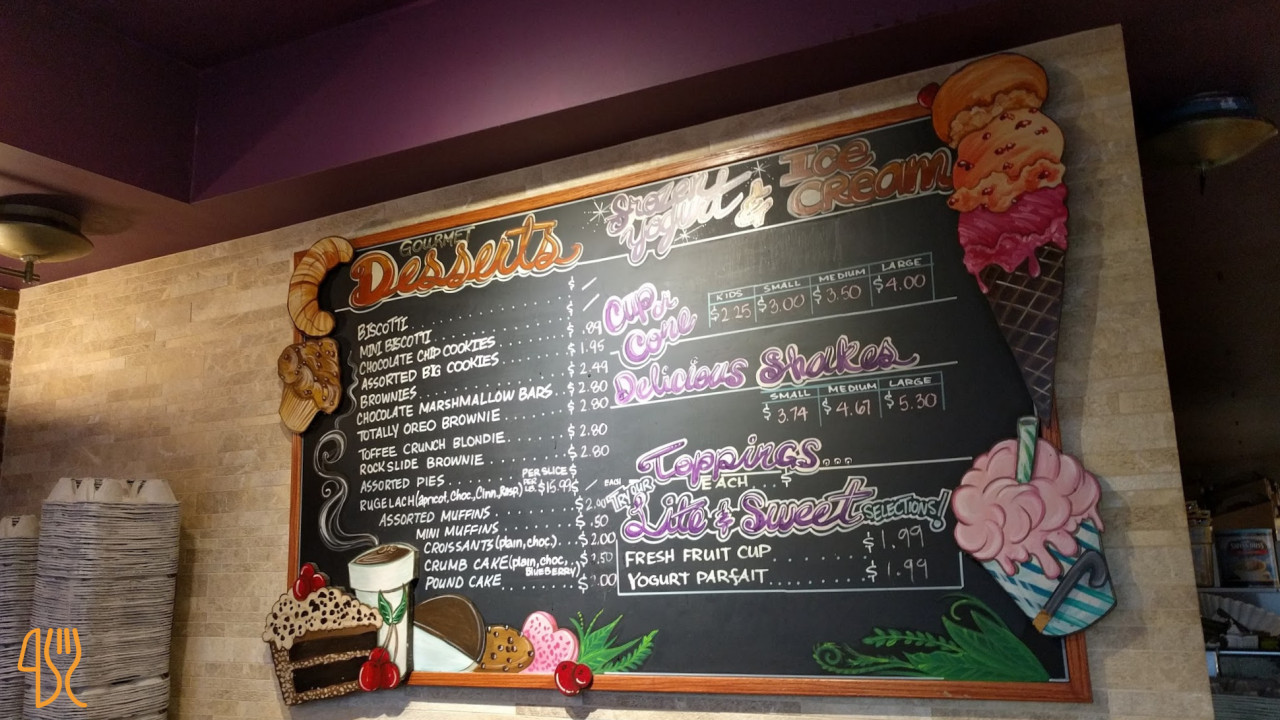 GOURMET
Desserts
BISCOTTI
MINI BISCOTTI
CHOCOLATE CHIP COOKIES $ .89
ASSORTED BIG COOKIES $ 1.95
BROWNIES $ 2.49
CHOCOLATE MARSHMALLOW BARS $ 2.80
TOTALLY OREO BROWNIE $ 2.80
TOFFEE CRUNCH BLONDIE $ 2.80
ROCKSLIDE BROWNIE $ 2.80
ASSORTED PIES PER SLICE $
RUGELACH (apricot, choc., Cinn, Rasp) PER LB. $15.99 / EACH
ASSORTED MUFFINS $ 2.00
MINI MUFFINS $ .50
CROISSANTS (plain, choc.) $ 2.00
CRUMB CAKE (plain, choc., BLUEBERRY) $ .50
POUND CAKE $ .00
frozen yogurt & Ice CREAM
Cup or Cone
KIDS SMALL MEDIUM LARGE
$2.25 $3.00 $3.50 $4.00
Delicious Shakes
SMALL MEDIUM LARGE
$3.74 $4.67 $5.30
Toppings...
EACH...$
TRY OUR
Lite & Sweet SELECTIONS!
FRESH FRUIT CUP $ 1.99
YOGURT PARFAIT $ 1.99